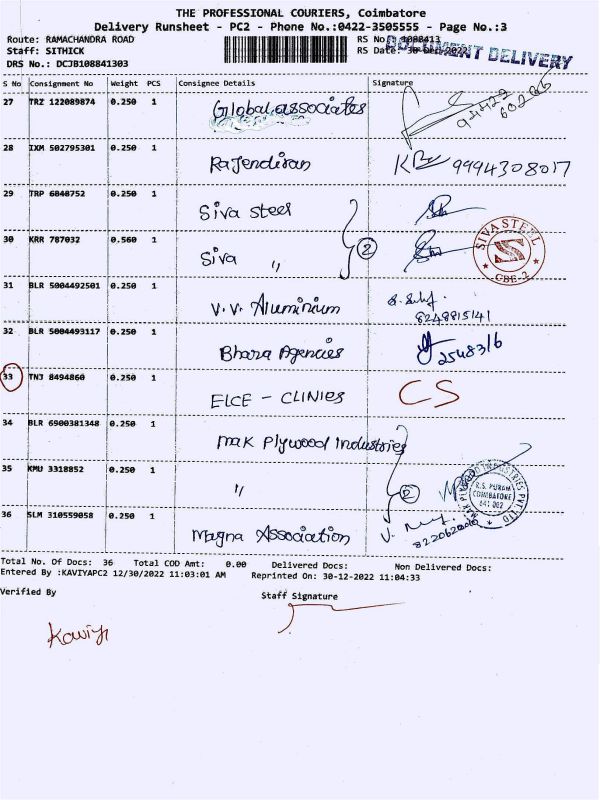 THE PROFESSIONAL COURIERS, Coimbatore
Delivery Runsheet - PC2 - Phone No.:0422-3505555 - Page No.:3
Route: RAMACHANDRA ROAD
RS No.: 1088413
Staff: SITHICK
RS Date: 30-Dec-2022
DOCUMENT DELIVERY
DRS No.: DCJB108841303
S No Consignment No Weight PCS Consignee Details Signature
27 TRZ 122089874 0.250 1 Global associates
94422
60266
28 IXM 502795301 0.250 1 Rajendiran 9994308017
29 TRP 6848752 0.250 1 Siva steel
30 KRR 787032 0.560 1 Siva 〃 2
SIVA STEEL S CBE-2
31 BLR 5004492501 0.250 1 V.V. Aluminium
8248815141
32 BLR 5004493117 0.250 1 Bhara Agencies 2548316
33 TNJ 8494860 0.250 1 ELCE - CLINIES CS
34 BLR 6900381348 0.250 1 Mak Plywood Industries
35 KMU 3318852 0.250 1 〃 2
R.S. PURAM
COIMBATORE
641 002
36 SLM 310559058 0.250 1 Magna Association
Total No. Of Docs: 36 Total COD Amt: 0.00 Delivered Docs: Non Delivered Docs:
Entered By :KAVIYAPC2 12/30/2022 11:03:01 AM Reprinted On: 30-12-2022 11:04:33
Verified By Staff Signature
Kaviya